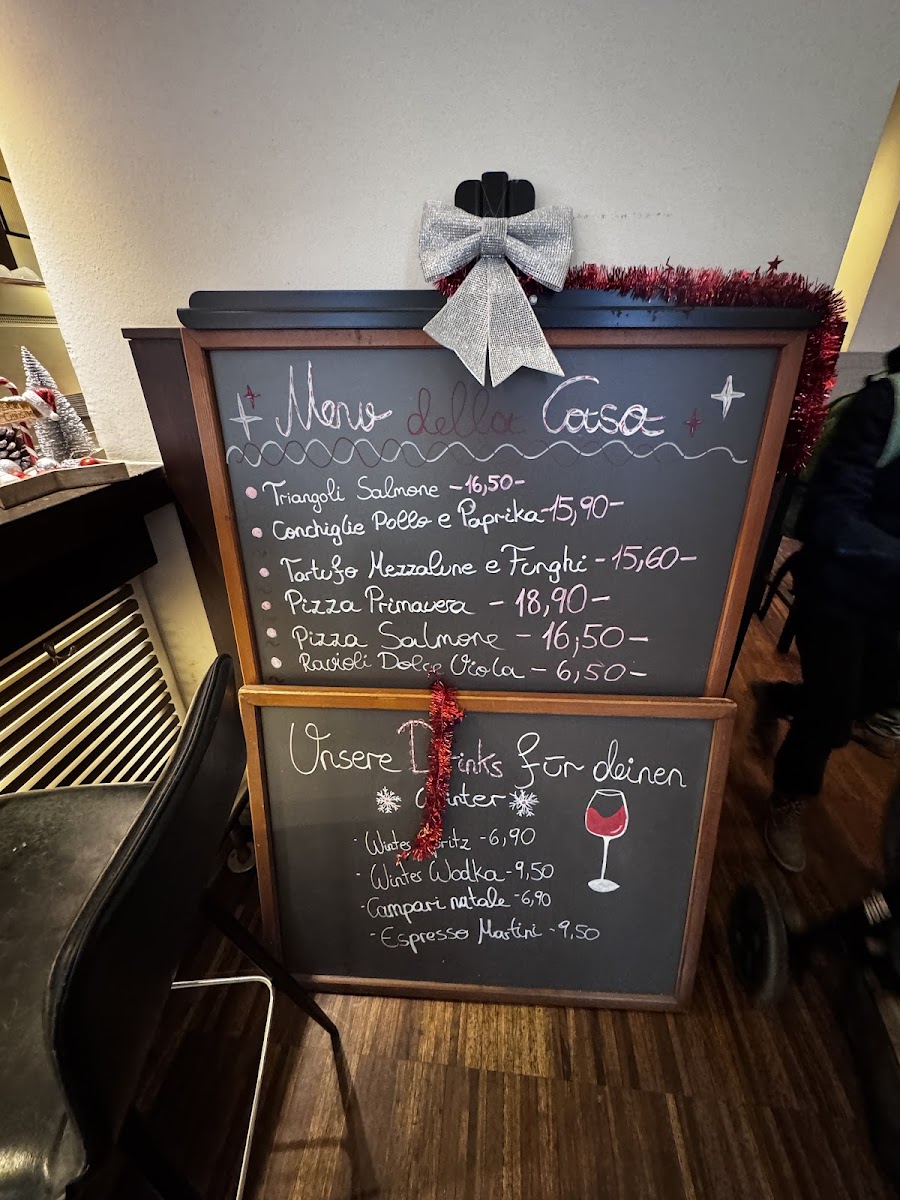 Menu della Casa
Triangoli Salmone -16,50-
Conchiglie Pollo e Paprika-15,90-
Tartufo Mezzalune e Funghi -15,60-
Pizza Primavera - 18,90-
Pizza Salmone - 16,50-
Ravioli Dolce Viola - 6,50-
Unsere Drinks für deinen
Winter
- Winter Spritz -6,90
- Winter Wodka -9,50
- Campari natale -6,90
- Espresso Martini -9,50